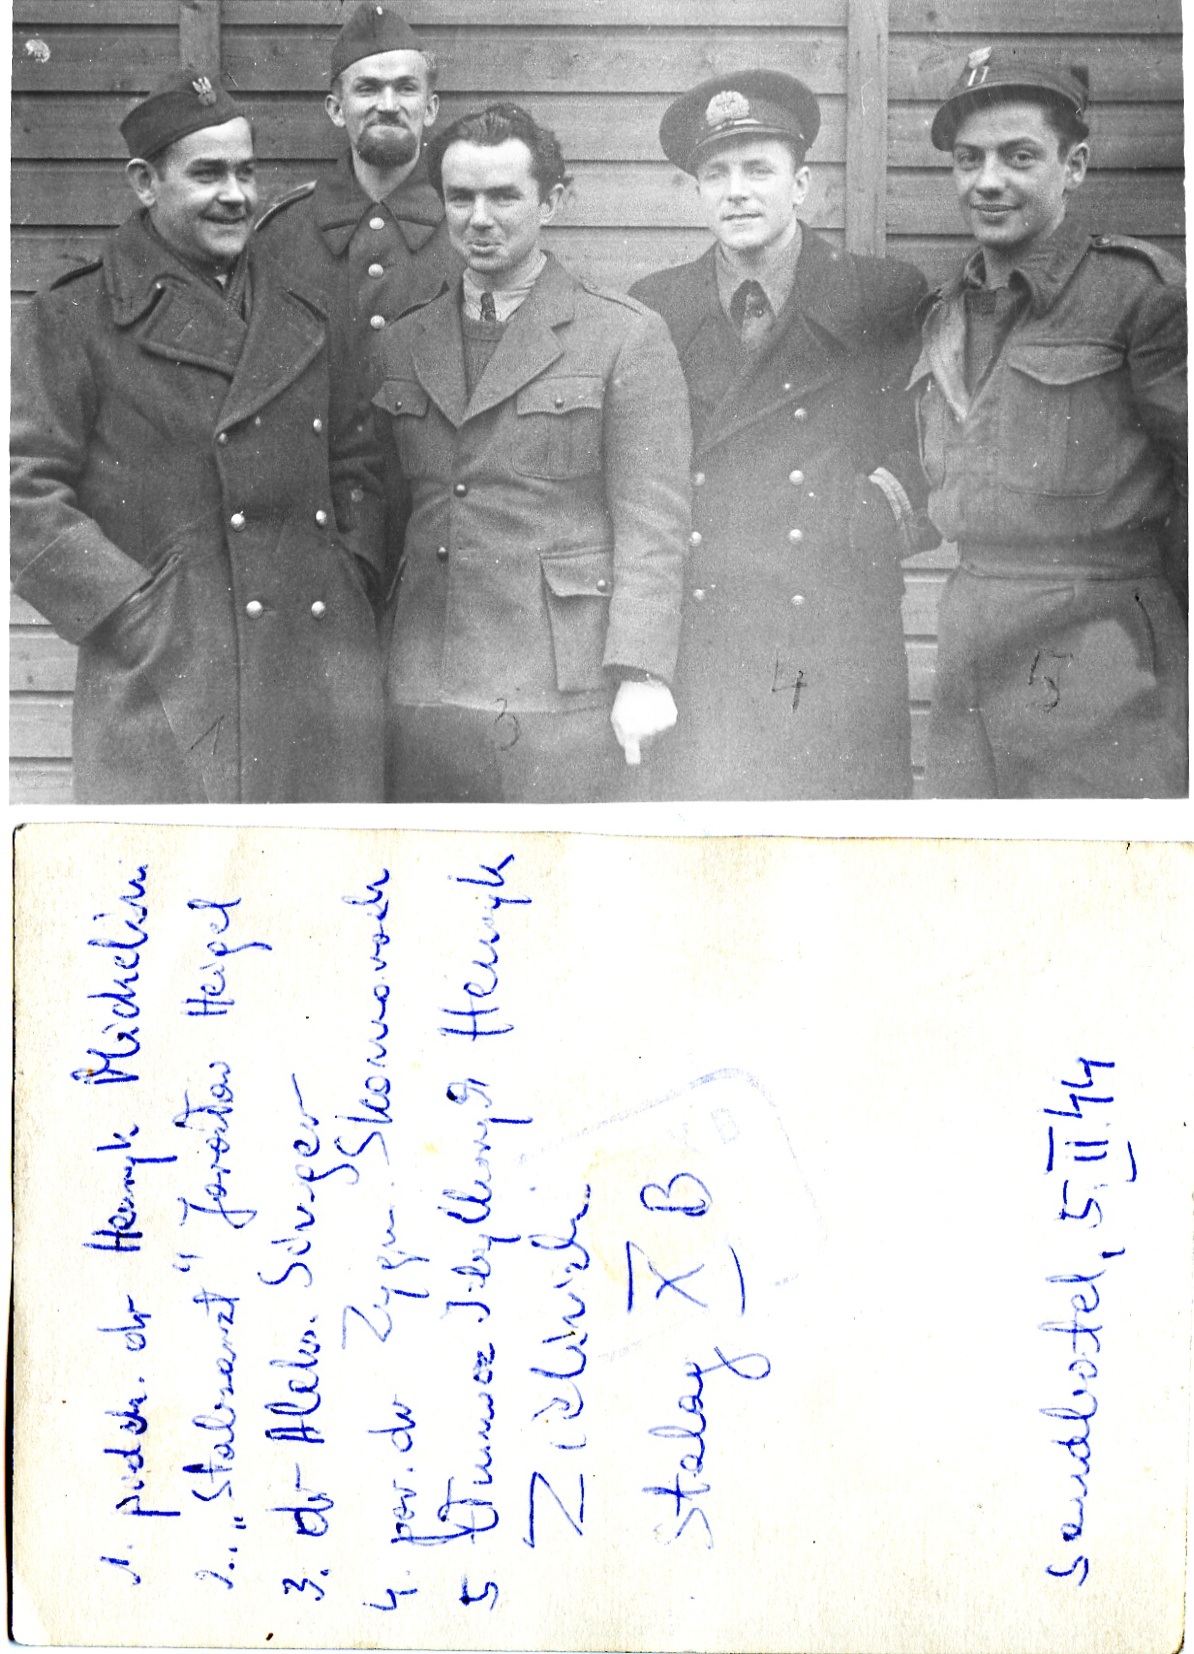 1
3
4
5
1. podch. dr Henryk Michelini
2. „Stabsarzt" Jarosław Heigel
3. dr Aleks. Singer
4. por. dr Zygm. Skomorovski
5 Tłumacz Henryk
Zieliński
Stalag X B
Sandbostel, 5.II.44